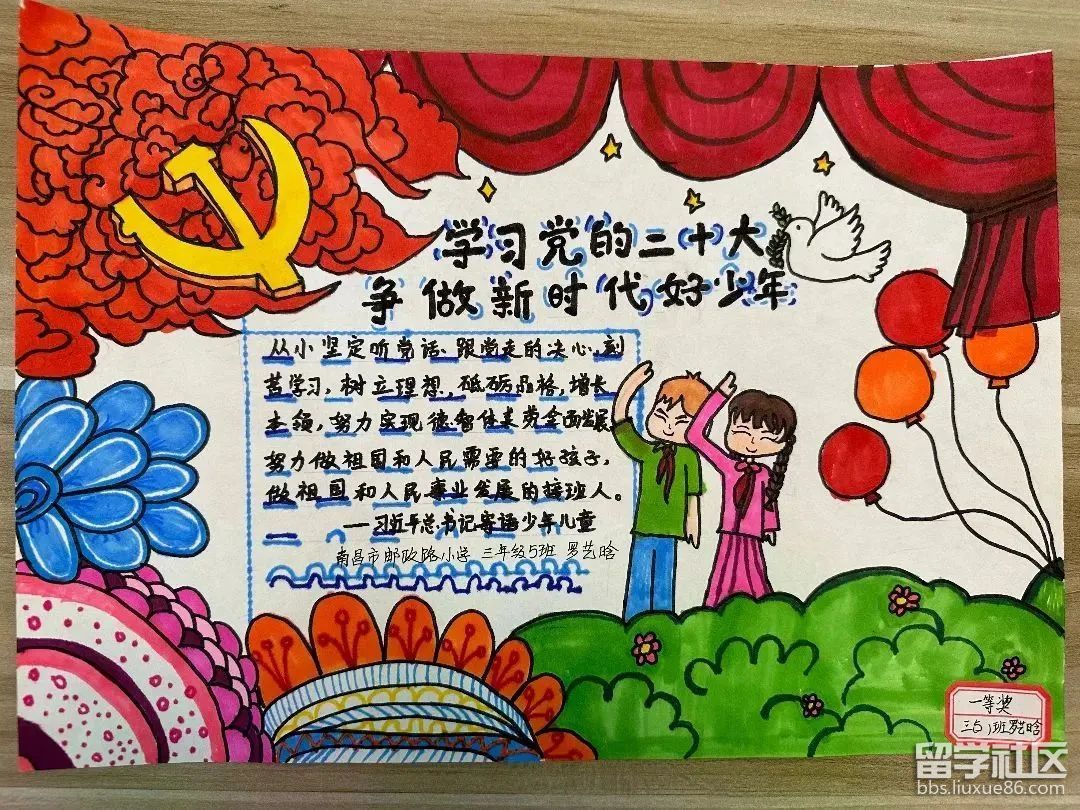 学习党的二十大
争做新时代好少年
从小坚定听党话、跟党走的决心,刻
苦学习,树立理想,砥砺品格,增长
本领,努力实现德智体美劳全面发展,
努力做祖国和人民需要的好孩子,
做祖国和人民事业发展的接班人。
——习近平总书记寄语少年儿童
南昌市邮政路小学 三年级5班 罗艺晗
一等奖
三(5)班罗艺晗
留学社区
bbs.liuxue86.com